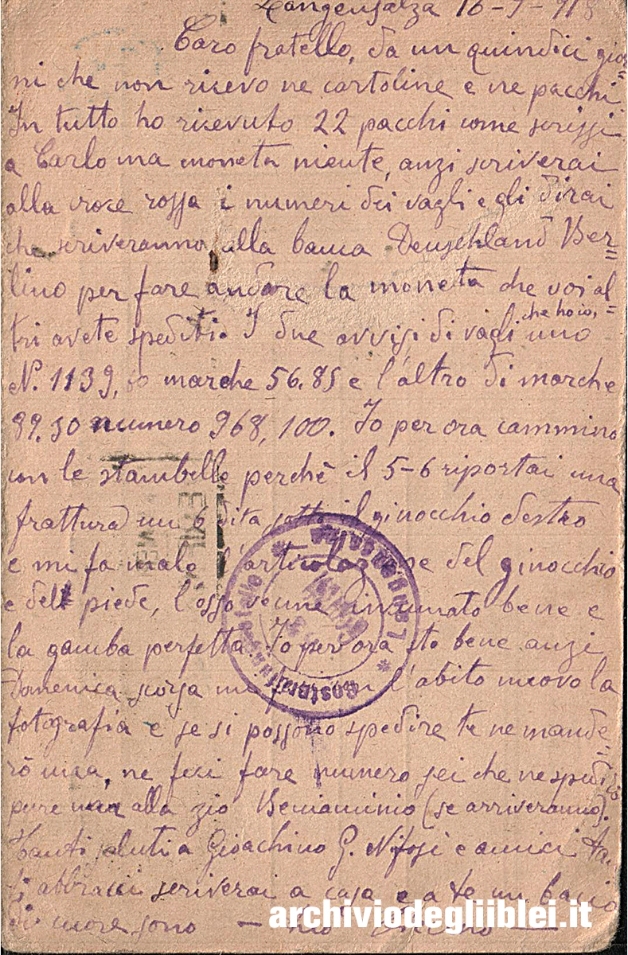 Langensalza 16-7-918
Caro fratello, da un quindici gior=
ni che non ricevo ne cartoline e ne pacchi
In tutto ho ricevuto 22 pacchi come scrissi
a Carlo ma moneta niente, anzi scriverai
alla croce rossa i numeri dei vagli e gli dirai
che scriveranno alla banca Deuschland Ber=
lino per fare andare la moneta che voi al=
tri avete spediti. I due avvisi di vagli che ho
uno
N. 1139, marche 56.85 e l'altro di marche
89.50 numero 968,100. Io per ora cammino
con le stambelle perchè il 5-6 riportai una
frattura un 6 dita sotto il ginocchio destro
e mi fa male l'articolazione del ginocchio
e del piede, l'osso venne bene e
la gamba perfetta. Io per ora sto bene anzi
Domenica scorsa l'abito nuovo la
fotografia e se si possono spedire te ne mande=
rò una, ne feci fare numero sei che ne spedi
pure una alla zio Beniaminio (se arriveranno).
Tanti saluti a Gioachino G. Nifosi e amici
abbracci scriverai a casa e a te un bacio
di cuore sono —
Langensalza
archiviodegliiblei.it